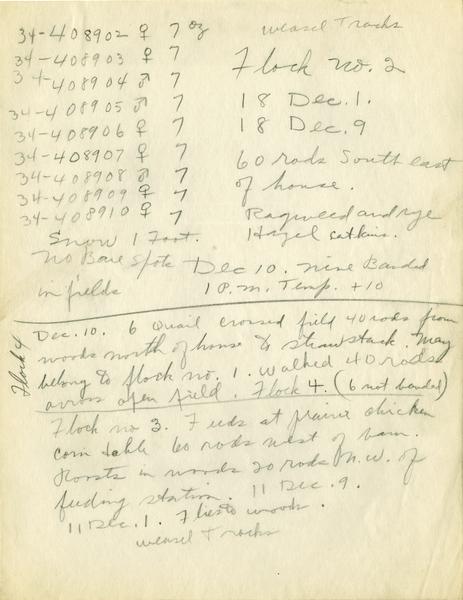 34-408902 ♀ 7 oz
34-408903 ♀ 7
34-408904 ♂ 7
34-408905 ♂ 7
34-408906 ♀ 7
34-408907 ♀ 7
34-408908 ♂ 7
34-408909 ♀ 7
34-408910 ♀ 7
Snow 1 Foot.
No Bare Spots
in fields
weasel Tracks
Flock no. 2
18 Dec. 1.
18 Dec. 9
60 rods South east
of house.
Ragweed and rye
Hazel catkins.
Dec 10. nine Banded
1 P.m. Temp. +10
Flock 4
Dec. 10. 6 Quail crossed field 40 rods from
woods north of house to strawstack. May
belong to flock no. 1. Walked 40 rods
across open field. Flock 4. (6 not banded)
Flock no 3. Feeds at prairie chicken
corn 60 rods west of barn.
Roosts in woods 20 rods N.W. of
feeding station. 11 Dec. 9.
11 Dec. 1. Flies to woods.
weasel Tracks